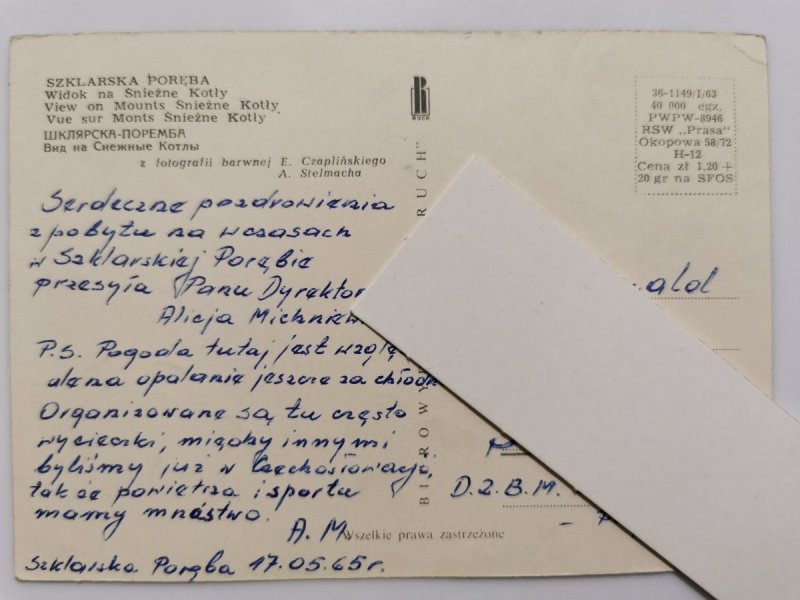 SZKLARSKA PORĘBA
Widok na Śnieżne Kotły
View on Mounts Śnieżne Kotły
Vue sur Monts Śnieżne Kotły
ШКЛЯРСКА-ПОРЕМБА
Вид на Снежные Котлы
z fotografii barwnej E. Czaplińskiego
A. Stelmacha
Serdeczne pozdrowienia
z pobytu na wczasach
w Szklarskiej Porębie
przesyła Panu Dyrektor
Alicja Michniew
P.S. Pogoda tutaj jest wzglę
dlena opalanie jeszcze za chłodn
Organizowane są tu często
wycieczki, między innymi
byliśmy już w Czechosłowacji,
tak że powietrza i sportu
mamy mnóstwo.
A.M.
Szklarska Poręba 17.05.65r.
RUCH
BIURO WY
RUCH"
Wszelkie prawa zastrzeżone
36-1149/I/63
40 000 egz.
PWPW-8946
RSW „Prasa"
Okopowa 58/72
H-12
Cena zł 1,20 +
20 gr na SFOS
ald
D.Z.B.M.